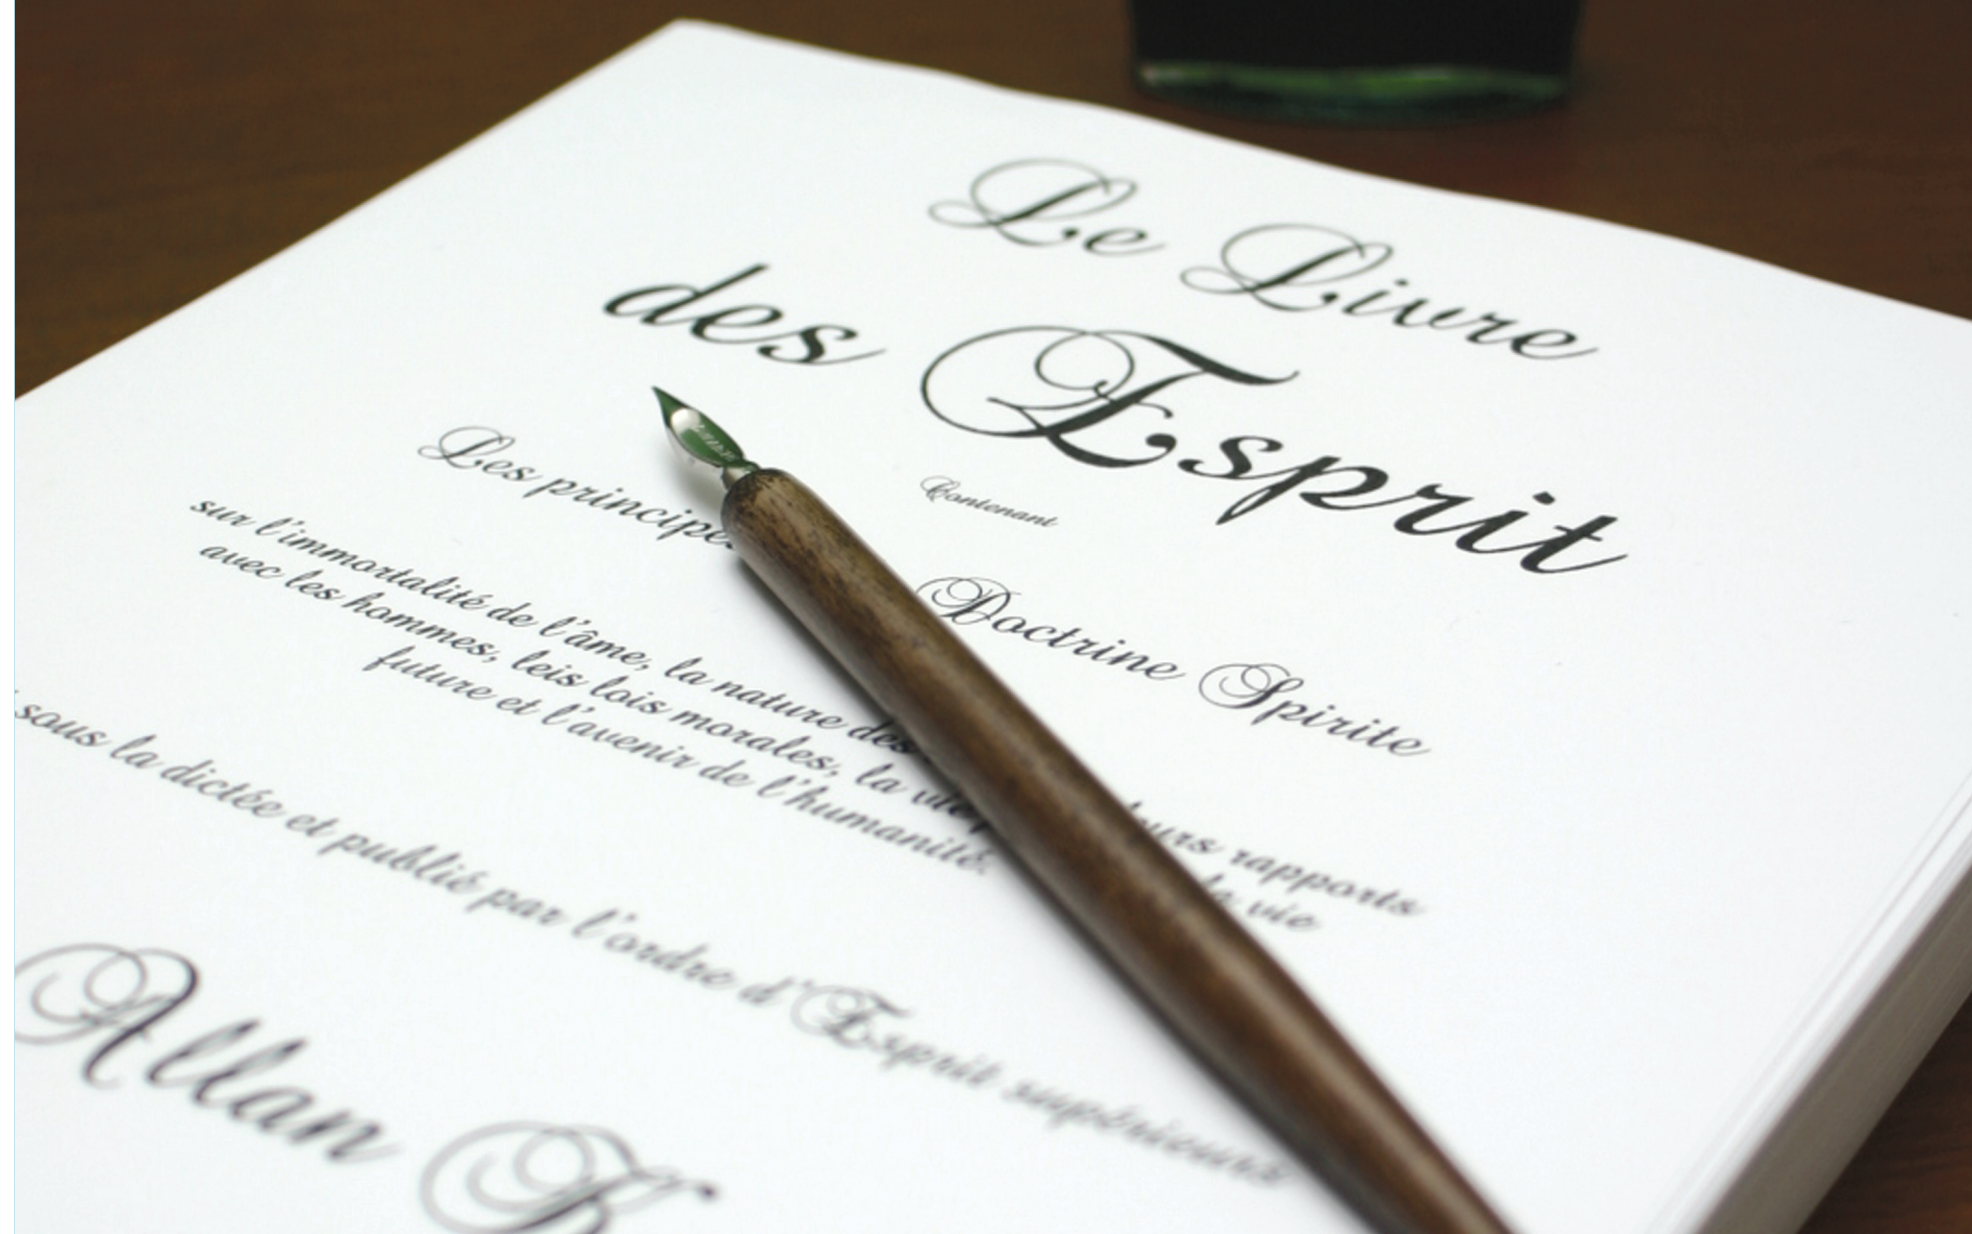 Le Livre
des Esprit
Contenant
Les principes Doctrine Spirite
sur l'immortalité de l'âme, la nature des leurs rapports
avec les hommes, leis lois morales, la vie la vie
future et l'avenir de l'humanité.
sous la dictée et publié par l'ordre d'Esprit supérieurs
Allan K